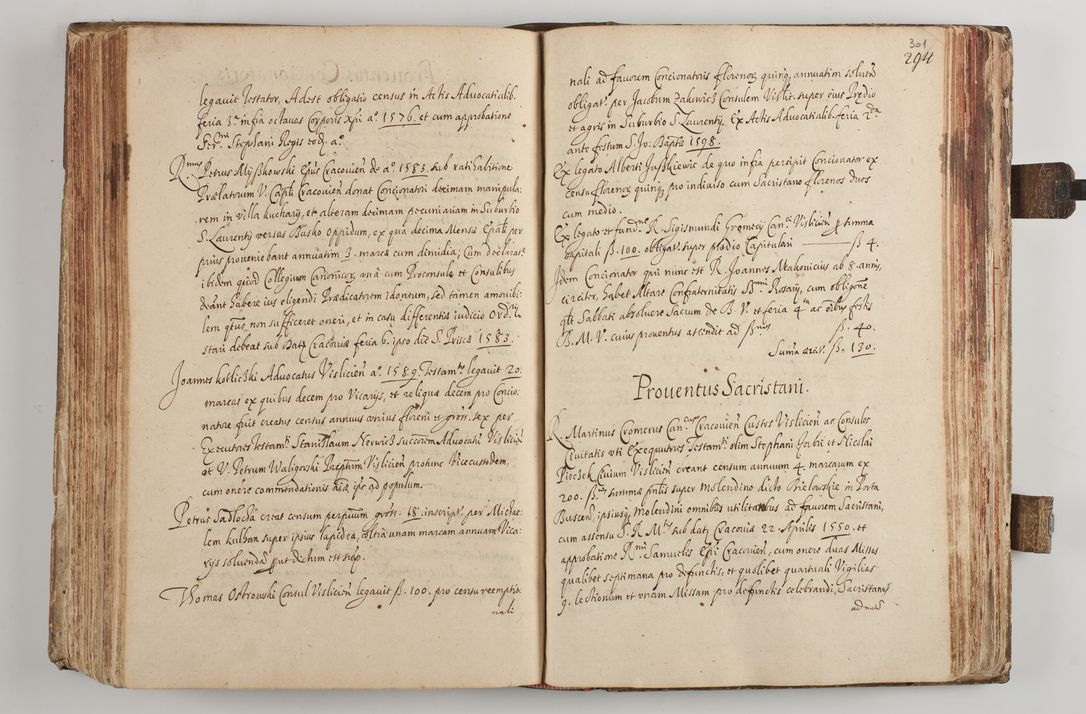 legauit Testator, Adest obligatio census in Actis Advocatialib.
feria 3ᵃ infra octauas Corporis Xpi aº 1576. et cum approbatione
S. Rᵐⁱ Stephani Regis eod. aº.
Rᵐᵘˢ Petrus Myßkowski Epus Cracouien de aº 1583. sub ratihabitione
Prælatorum V. Capli Cracouien donat Concionatori decimam manipula:
rem in villa kuchary, et alteram decimam pecuniariam in Suburbio
S. Laurentij versus Busko oppidum, ex qua decima Mensæ Epali per
prius proueniebant annuatim 3. marcæ cum dimidia; Cum declarat:
ibidem quod Collegium Canonicor, unà cum Proconsule et Consulibus
debeant habere ius eligendi Prædicatorem idoneum, sed tamen amouibi:
lem qtus, non sufficeret oneri, et in casu differentiæ iudicio Ordrij
stari debeat sub Datæ Cracouiæ feria 6. ipso die S. Priscæ 1583.
Joannes kotliczki Advocatus Vislicien aº 1589. Testamto legauit 20.
marcas ex quibus decem pro Vicarijs, et reliquæ decem pro Concio:
natore fuit creatus census annuus unius floreni et gross. sex per
Executores Testamti Stanislaum Nerwicz succorem Advocati Vislicien
et V. Petrum Waligorski Preptum Vislicien protunc Vicecustodem,
cum onere commendationis aiæ ips ad populum.
Petrus Sadlocha creat censum perpetuum gross. 18. inscript. per Michae:
lem kulhan super ipsius lapidea, coltra unam marcam annuam Vica:
rys soluendã put dictum est sup.
Thomas Ostrowski Consul Vislicien legauit ß. 100. pro censu reemptio:
nali
301
294
nali ad fauorem Concionatoris florenor, quinq, annuatim soluen
obligat. per Jacobum Zakowicz Consulem Vislic. super eius Prædio
et agris in Suburbio S. Laurentij. Ex Actis Advocatialib. feria 2ᵈᵃ
ante festum S. Jo: Baptæ 1598.
Ex legato Alberti Juszkiewic de quo infra percipit Concionator ex
censu florenor, quinq, pro indiuiso cum Sacristano florenos duos
cum medio.
Ex legato et fundne R. Sigismundi Gromecij Canci Vislicien p summa
capitali ß. 100. obligat. super prædio Capitulari ß 4.
Idem Concionator qui nunc est R. Joannes Makouicius ab 8. annis,
circiter, habet Altare Confraternitatis Bᵐᵃ Rosarij, cum obligone
qlt Sabbati absoluere Sacrum de B. V. et feria 4ᵗᵃ ac oibus festis
B. M. V. cuius prouentus ascendit ad ß. 40.
Summa ß. 130.
Prouentus Sacristani.
R. Martinus Cromerus Can. Cracouien Custos Vislicien ac Consules
Ciuitatis uti Exequutores Testamti olim Stephani et Nicolai
Pioczek Ciuium Vislicien creant censum annuum 4. marcarum ex
200. summæ pntis super Molendino dicto Bielawskie in Porta
Buscen, ipsiusq, molendini omnibus utilitatibus ad fauorem Sacristani,
cum assensu S. R. Mtis sub dat. Cracouiæ 22. Aprilis 1550. et
approbatione Rᵐⁱ Samuelis Epi Cracouien, cum onere duas Missas
qualibet septimana pro defunctis, et quolibet quartuali Vigilias
9. lectionum et unam Missam pro defunctis celebrandi, Sacristanus